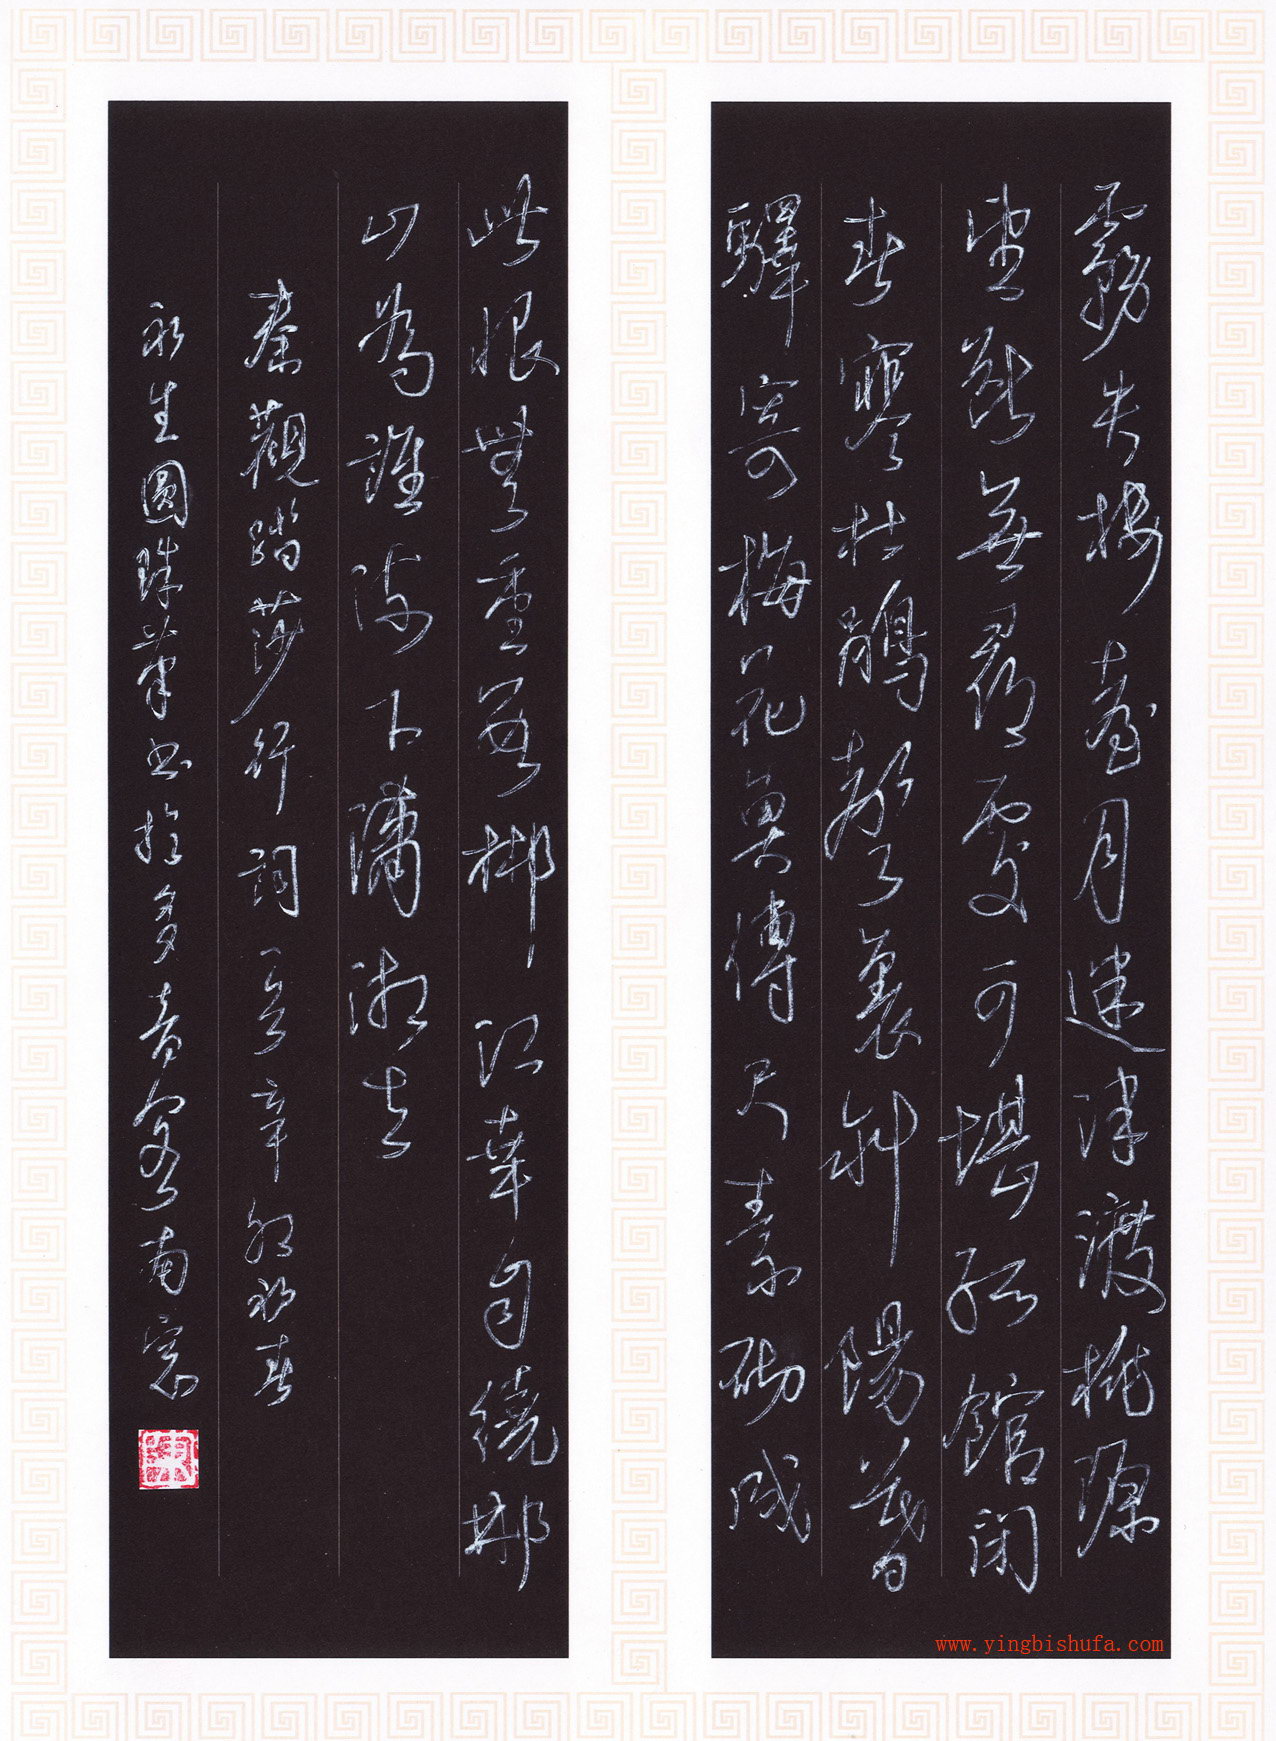 霧失樓臺月迷津渡桃源
望斷無尋處可堪孤館閉
春寒杜鵑聲裏斜陽暮
驛寄梅花魚傳尺素砌成
此恨無重數郴江幸自繞郴
山為誰流下瀟湘去
秦觀踏莎行詞一首辛卯初春
永生圓珠筆書於多音南窗
陳
www.yingbishufa.com